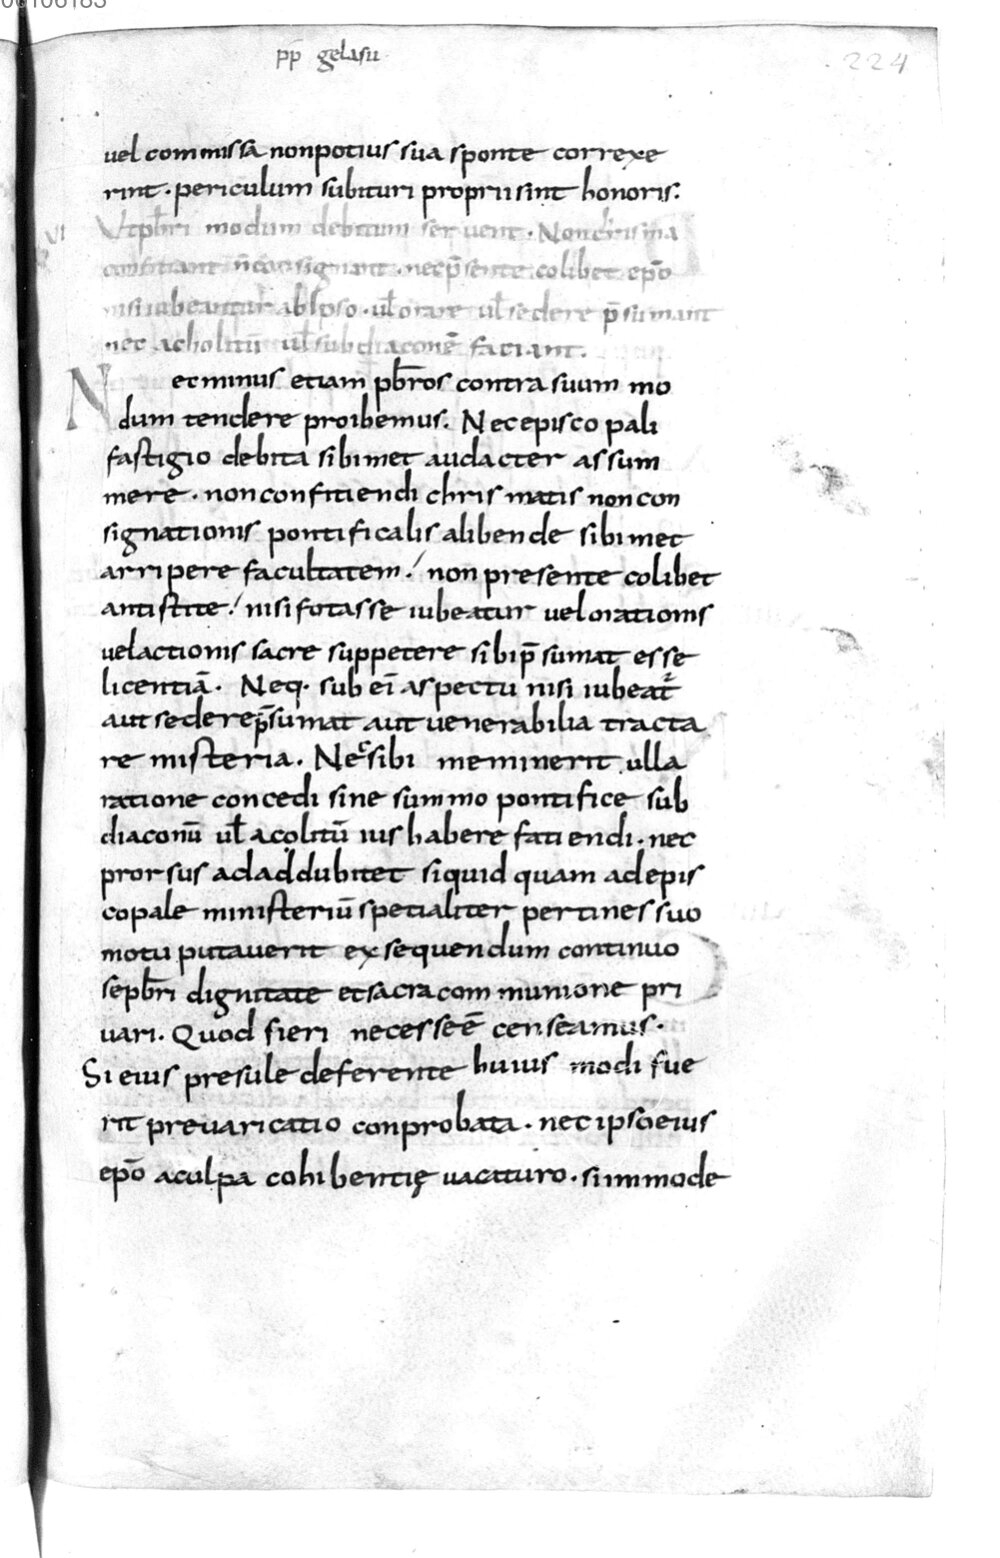 00106183
pp̄ gelasii
224
uel commissā non potius sua sponte correxe
rint · periculum subituri proprii sint honoris:
VI
Ut pb̄ri modum debitum seruent · Non crisma
conficiant n̄ consignent · nec p̄sente colibet ep̄o
nisi iubeantur ab Ipso · ul̄ orare ul̄ sedere p̄sumant
nec acholitū ul̄ subdiaconē faciant.
Nec minus etiam pb̄ros contra suum mo
dum tendere proibemus. Nec episcopali
fastigio debita sibimet audacter assum
mere · non conficiendi chrismatis non con
signationis pontificalis alibende sibimet
arripere facultatem! non presente colibet
antistite! nisi fotasse iubeatur uel orationis
uel actionis sacre suppetere sibi p̄sumat esse
licentiā. Neq· sub ei aspectu nisi iubeat̄
aut sedere p̄sumat aut uenerabilia tracta
re misteria. Nec sibi meminerit ulla
ratione concedi sine summo pontifice sub
diaconū ul̄ acolitū ius habere faciendi · nec
prorsus adaddubitet siquid quam ad epis
copale ministeriū specialiter pertines suo
motu putauerit exsequendum continuo
se pb̄ri dignitate et sacra communione pri
uari. Quod fieri necesse ē censeamus.
Si eius presule deferente huius modi fue
rit preuaricatio conprobata · nec ipso eius
ep̄o a culpa cohibentię uacaturo · si immode